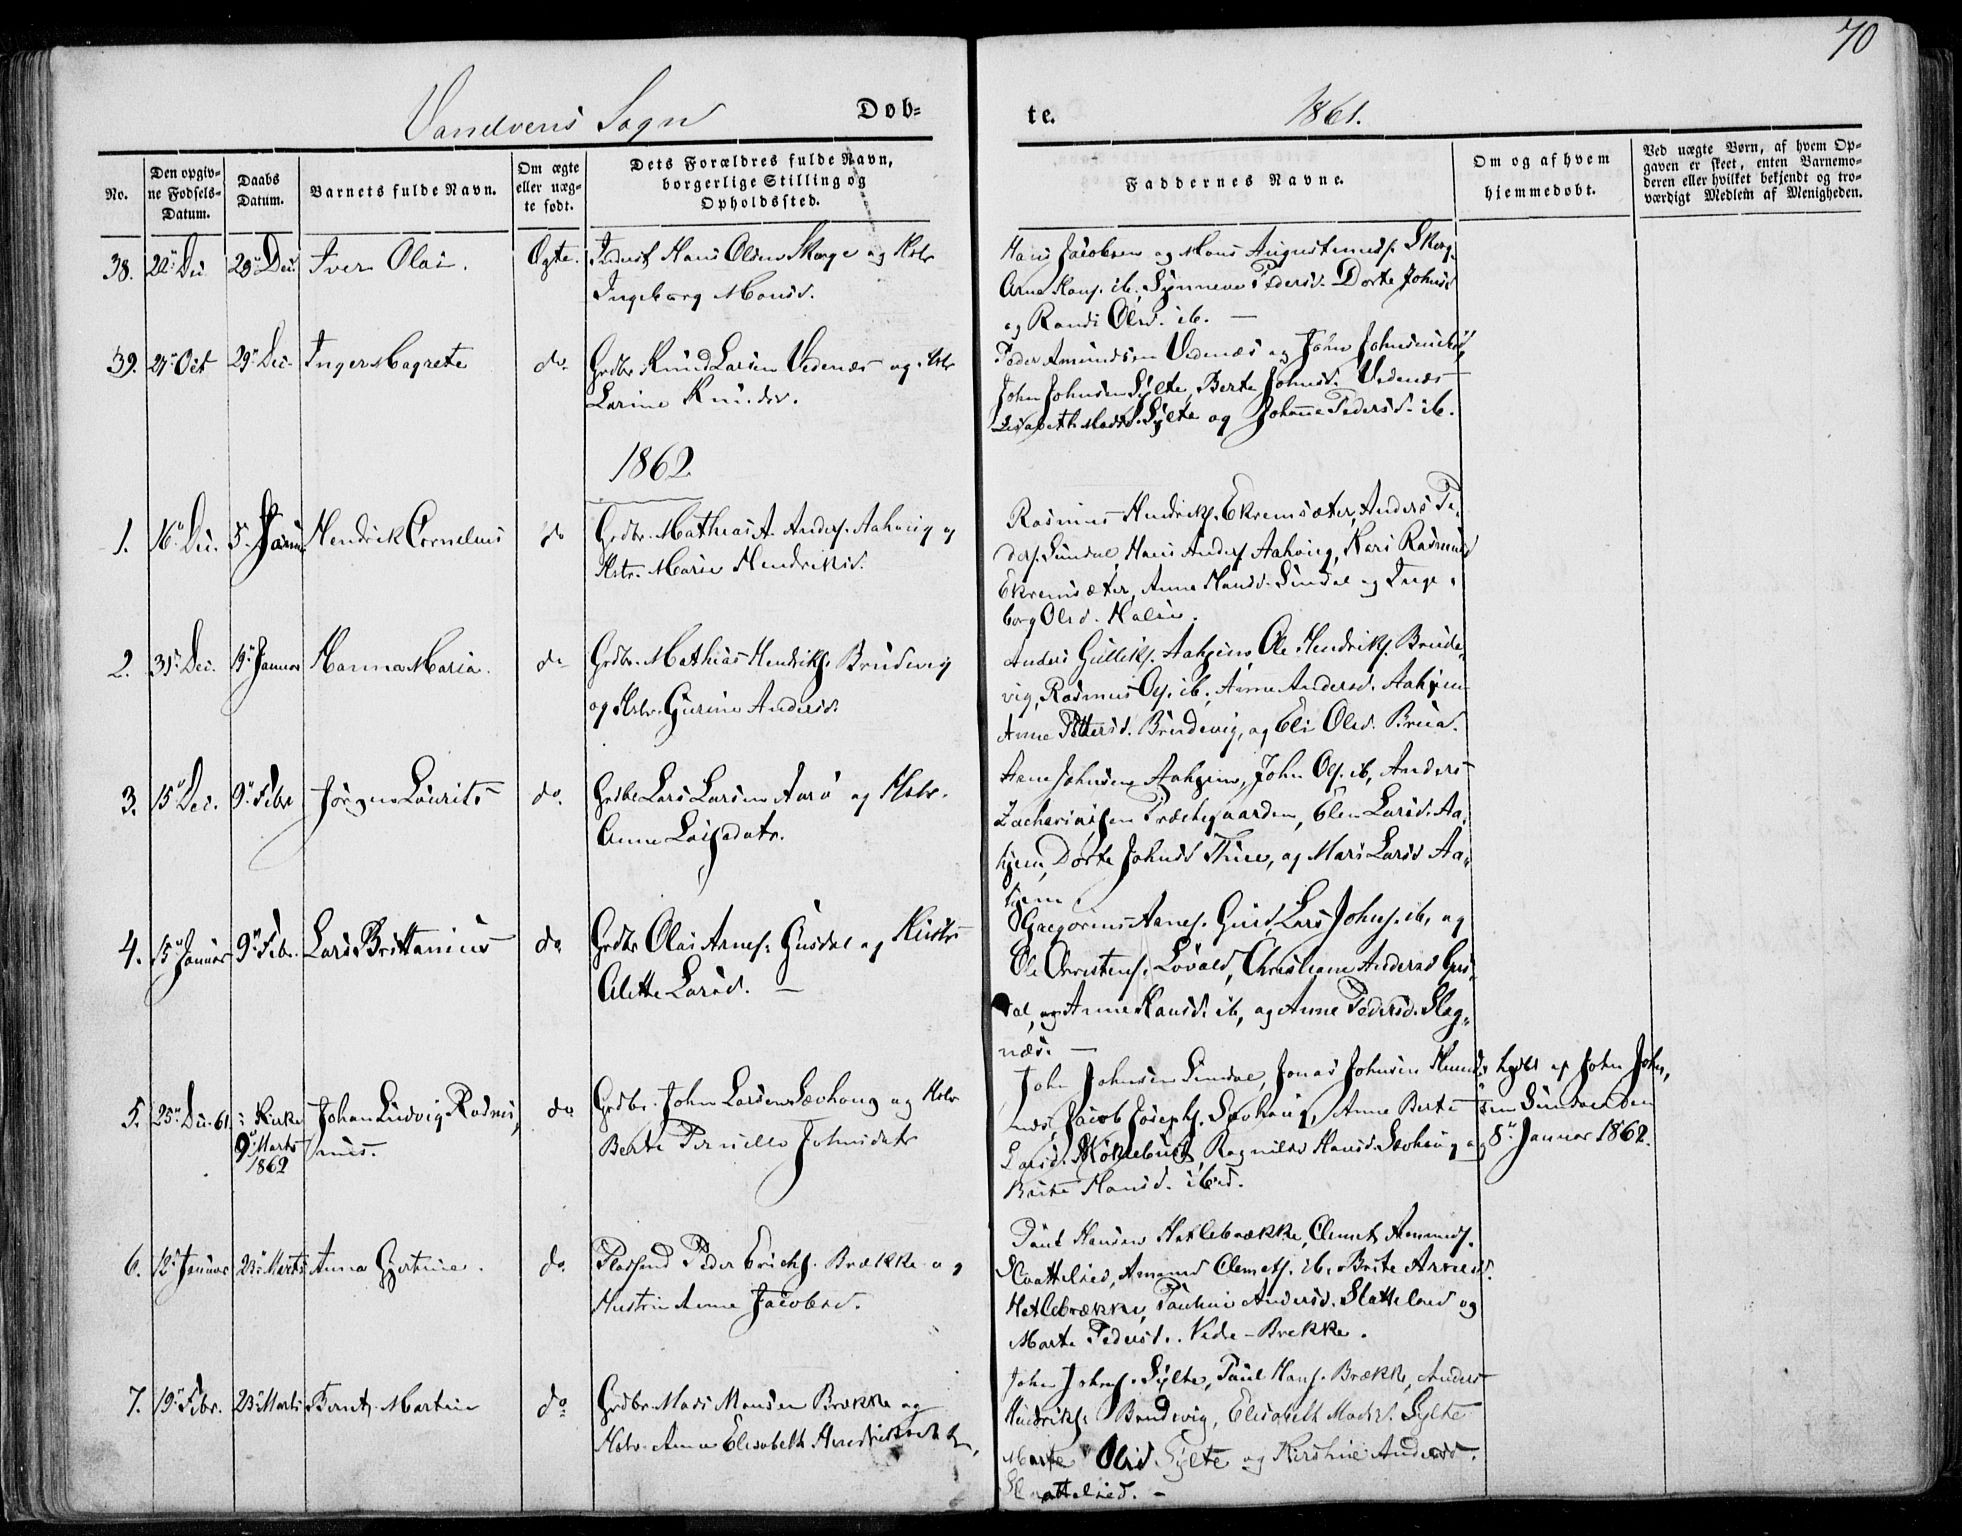 70
Vandvens Sogn Døb=
te. 1861.
No.
Den opgiv=
ne Fødsels=
Datum.
Daabs
Datum.
Barnets fulde Navn.
Om ægte
eller uæg=
te født.
Dets Forældres fulde Navn,
borgerlige Stilling og
Opholdssted.
Faddernes Navne.
Om og af hvem
hjemmedøbt.
Ved uægte Børn, af hvem Op=
gaven er skeet, enten Barnemo=
deren eller hvilket bekjendt og tro=
værdigt Medlem af Menigheden.
38. 22 Dec 29 Dec Iver Olai. Ægte. Hans Olsen Skorge og Hstr
Ingeborg Monsd.
Hans Jacobsen og Mons Augustinusf. Skorg.
Arne Hansf. ib. Synneve Pedersd. Dorte Johnsd
og Randi Olsd. ib. —
39. 27 Oct 29 Dec. Inger Magrete do. Grdbr Knud Larsen Vedenæs og Hstr
Larine Knudsd.
Peder Amundsen Vedenæs og John Johnsen
John Johnsen Sylte, Berte Johnsd. Vedenæs
Elisabeth Madsd. Sylte og Johanne Pedersd. ib.
1862
1. 16 Dec. 5 Januar Hendrik Cornelius do Grdbr. Mathias A. Andersf. Aahvig og
Hstr. Marie Hendriksd.
Rasmus Hendriksf. Ekremsæter, Anders Pe-
dersf. Sundal, Hans Andersf Aahvig, Kari Rasmusd
Ekremsæter, Anne Hansd. Sundal og Inge-
borg Olsd.
2. 31 Dec. 19 Januar Hanna Maria. do Grdbr. Mathias Hendriksf. Brudevig
og Hstr. Gurine Andersd.
Anders Gulliksf. Aahjem, Ole Hendriksf. Brude-
vig, Rasmus Olsf. ib., Anne Andersd. Aahjem
Anne Pettersd. Brudevig, og Eli Olsd.
3. 15 Dec. 9 Febr Jørgen Laurits do. Grdbr Lars Larsen Aarø og Hstr.
Anne
Arne Johnsen Aahjem, John Olsf. ib, Anders
Zachariassen Præstegaarden, Elen Larsd. Aa-
hjem, Dorte Johnsd Thue, og Mari Larsd Aa-
hjem.
4. 15 Januar 9 Febr. Lars Brittanius do Grdbr Olai Arnesf. Gusdal og Hustr
Alette Larsd. —
Gregorius Arnesf. Gusd, Lars Johnsf. ib, og
Ole Christensf. Løvold, Christiane Andersd Gus-
dal, og Anne Hansd. ib, og Anne Pedersd. Slag-
næs. —
5. 25 Dec. 61. i Kirke
9 Marts
1862
Johan Ludvig Rasmi-
nus. do Grdbr. John Larsen Sævhoug og Hstr
Berte Pernille Johnsdatr
John Johnsen Sundal, Jonas Johnsen
Jacob Josephsf. Sævhoug, Anne Berte
Larsd. Myklebust, Ragnilde Hansd. Sævhoug og
Brite Hansd. ibid.
hjdbt af John John-
sen Sundal den
8 Januar 1862.
6. 12 Januar 23 Marts Anna Gjertine. do. Pladsmd Peder Erichsf. Brække og
Hustru Anne Jacobsd.
Paul Hansen Hatlebrække, Clemet Amundsf.
Slattelied, Amund Clemetsf. ib. Brite Arnesd.
Hatlebrække, Pauline Andersd. Slattelied og
Marte Pedersd. Vede-Brekke.
7. 19 Febr. 23 Marts Bernt Martin do Grdbr Mads Monsen Brække og
Hstr. Anne Elisabeth Hendriksdatr,
John Johnsf. Sylte, Paul Hansf. Brække, Anders
Hendriksf. Brudevig, Elisabeth Madsd. Sylte
Marte Olsd Sylte og Kirstine Andersd.
Slattelied. —